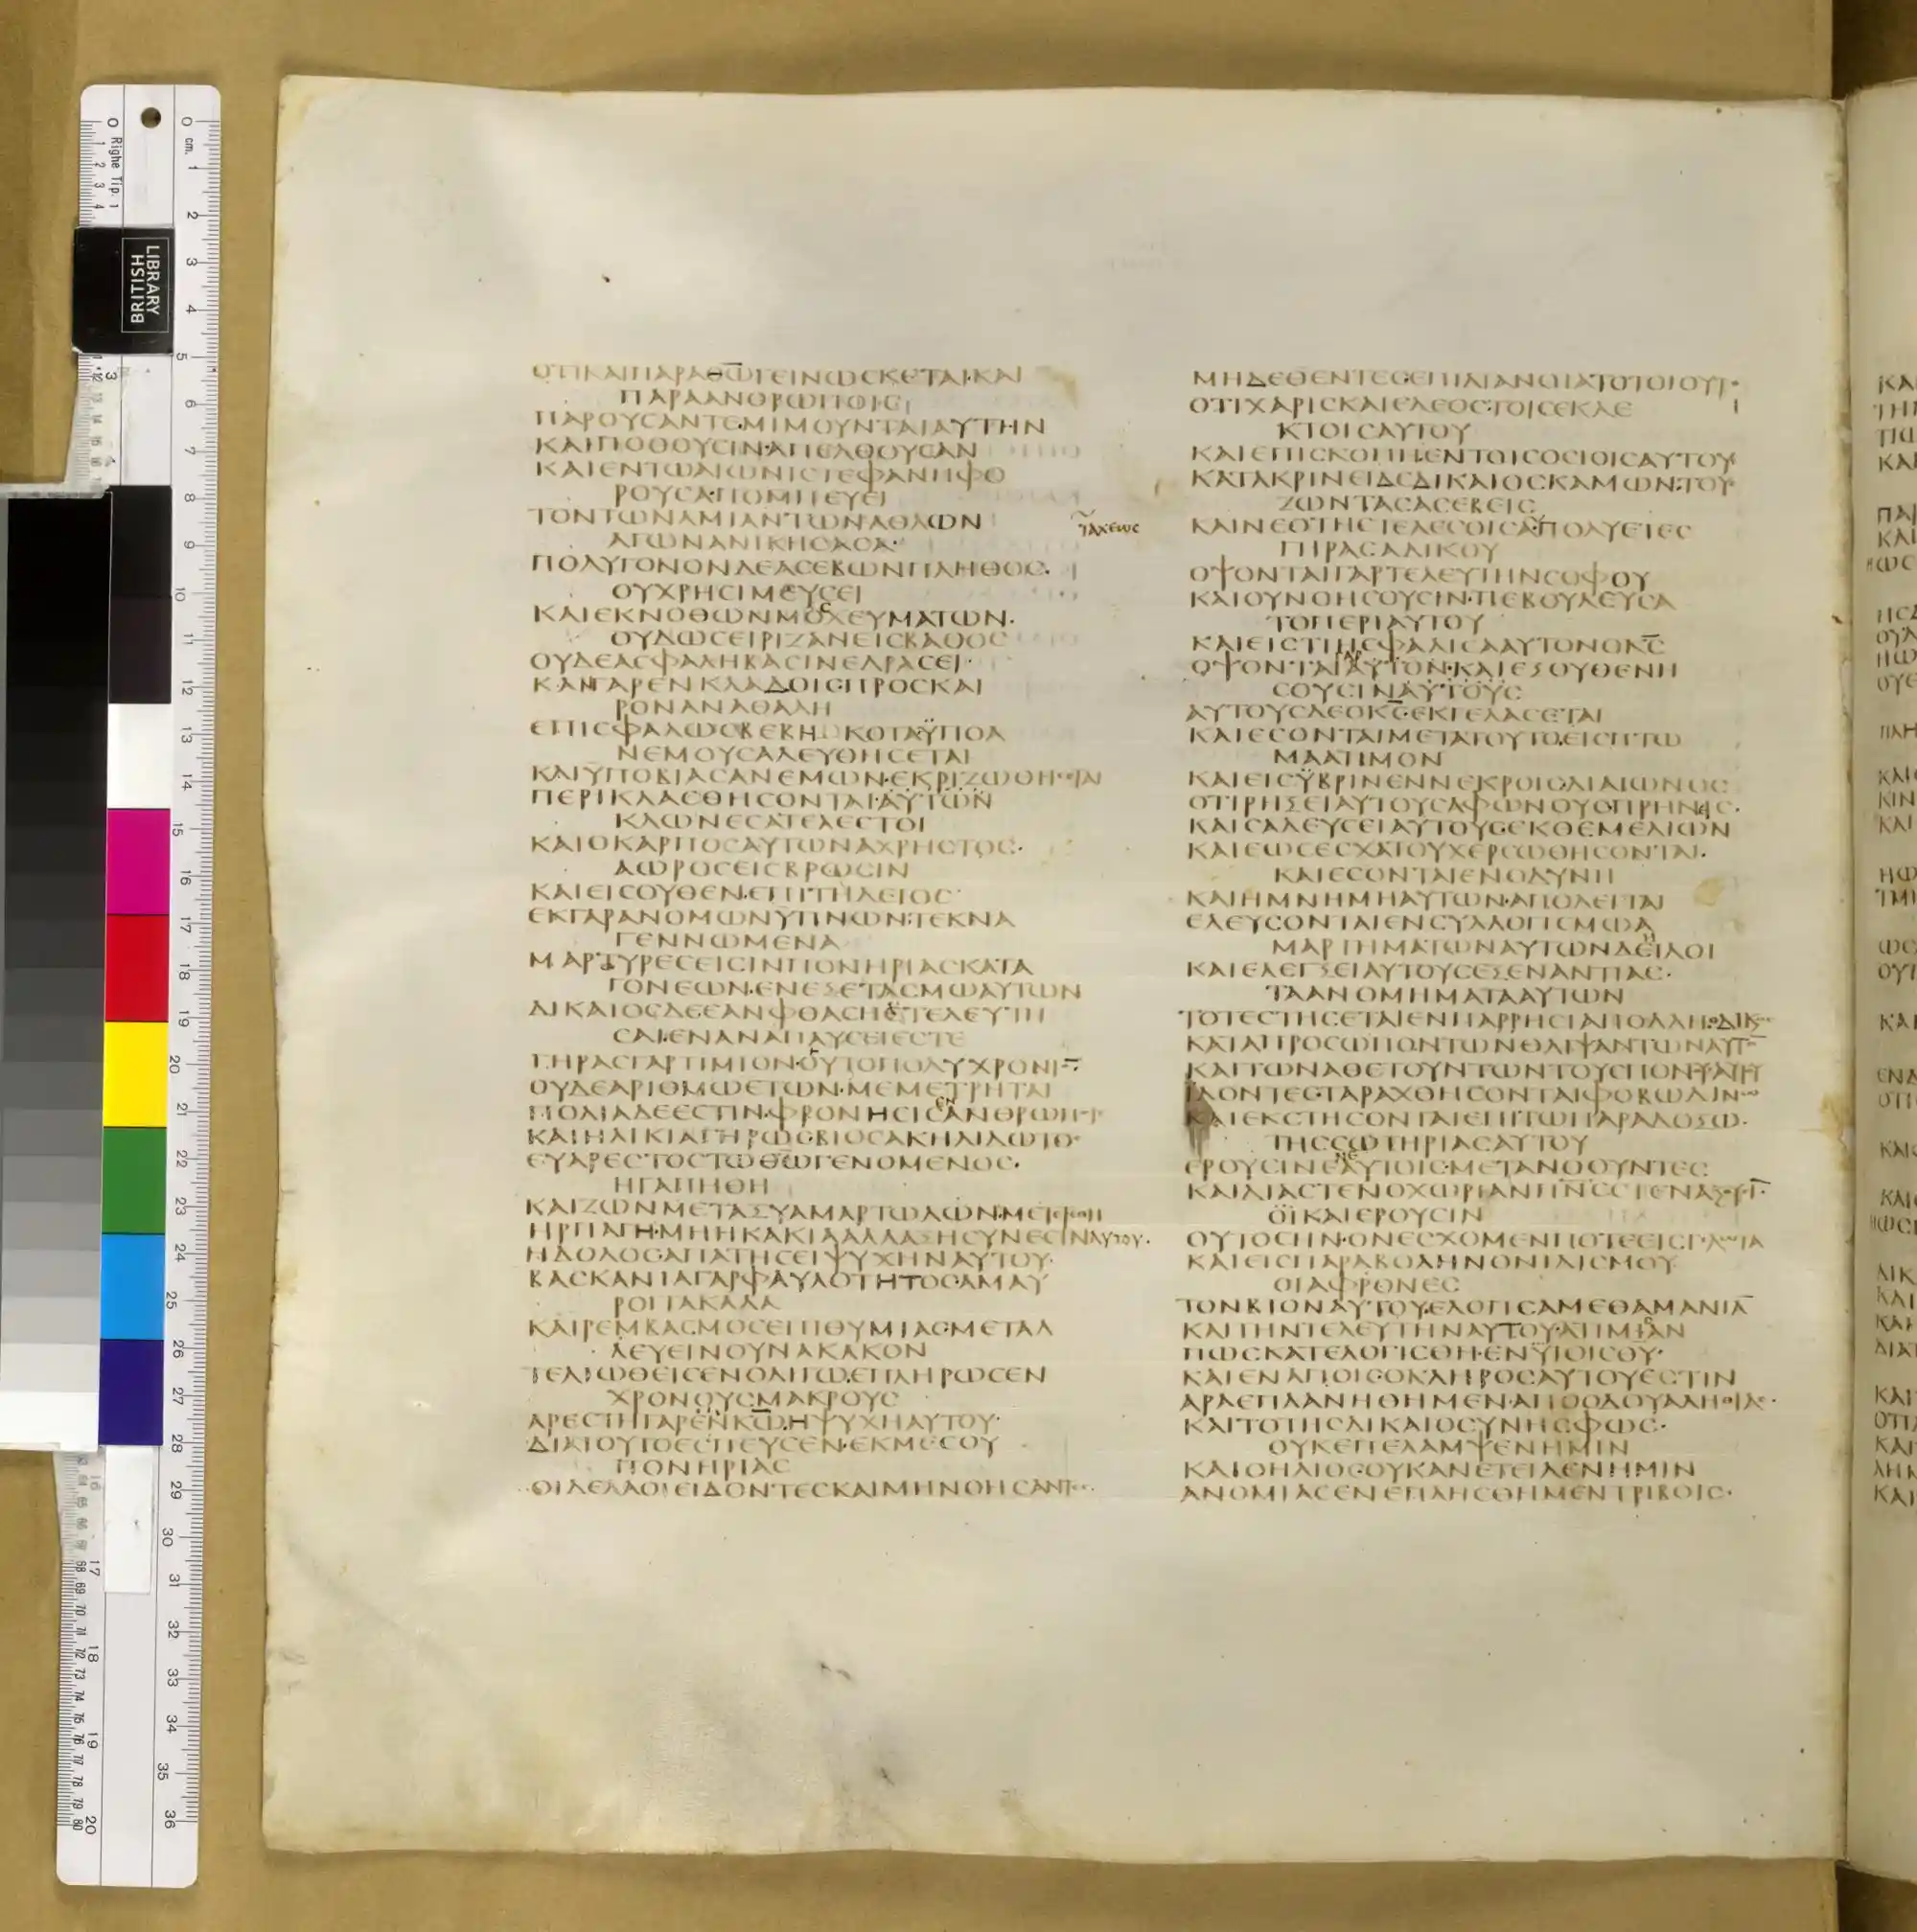 ΟΤΙΚΑΙΠΑΡΑΘΩΓΕΙΝΩCΚΕΤΑΙ·ΚΑΙ
ΠΑΡΑΑΝΘΡΩΠΟΙC
ΠΑΡΟΥCΑΝΤΕ·ΜΙΜΟΥΝΤΑΙΑΥΤΗΝ
ΚΑΙΠΟΘΟΥCΙΝ·ΑΠΕΛΘΟΥCΑΝ
ΚΑΙΕΝΤΩΑΙΩΝΙCΤΕΦΑΝΗΦΟ
ΡΟΥCΑ·ΠΟΜΠΕΥΕΙ
ΤΟΝΤΩΝΑΜΙΑΝΤΩΝΑΘΛΩΝ
ΑΓΩΝΑΝΙΚΗCΑCΑ·
ΠΟΛΥΓΟΝΟΝΔΕΑCΕΒΩΝΠΛΗΘΟC·
ΟΥΧΡΗCΙΜΕΥCΕΙ
ΚΑΙΕΚΝΟΘΩΝΜΟCΧΕΥΜΑΤΩΝ·
ΟΥΔΩCΕΙΡΙΖΑΝΕΙCΒΑΘΟC
ΟΥΔΕΑCΦΑΛΗΒΑCΙΝΕΔΡΑCΕΙ·
ΚΑΝΓΑΡΕΝΚΛΑΔΟΙC·ΠΡΟCΚΑΙ
ΡΟΝΑΝΑΘΑΛΗ
ΕΠΙCΦΑΛΩCΒΕΒΗΚΟΤΑΫΠΟΑ
ΝΕΜΟΥCΑΛΕΥΘΗCΕΤΑΙ
ΚΑΙΥΠΟΒΙΑCΑΝΕΜΩΝ·ΕΚΡΙΖΩΘΗCΕΤΑΙ
ΠΕΡΙΚΛΑCΘΗCΟΝΤΑΙ·ΑΥΤΩΝ
ΚΛΩΝΕCΑΤΕΛΕCΤΟΙ
ΚΑΙΟΚΑΡΠΟCΑΥΤΩΝΑΧΡΗCΤΟC·
ΑΩΡΟCΕΙCΒΡΩCΙΝ
ΚΑΙΕΙCΟΥΘΕΝ·ΕΠΙΤΗΔΕΙΟC·
ΕΚΓΑΡΑΝΟΜΩΝΥΠΝΩΝ·ΤΕΚΝΑ
ΓΕΝΝΩΜΕΝΑ
ΜΑΡΤΥΡΕCΕΙCΙΝΠΟΝΗΡΙΑCΚΑΤΑ
ΓΟΝΕΩΝ·ΕΝΕΞΕΤΑCΜΩΑΥΤΩΝ
ΔΙΚΑΙΟCΔΕΕΑΝΦΘΑCΗΤΕΛΕΥΤΗ
CΑΙ·ΕΝΑΝΑΠΑΥCΕΙΕCΤΕ
ΓΗΡΑCΓΑΡΤΙΜΙΟΝ·ΟΥΤΟΠΟΛΥΧΡΟΝΙ
ΟΥΔΕΑΡΙΘΜΩΕΤΩΝ·ΜΕΜΕΤΡΗΤΑΙ
ΠΟΛΙΑΔΕΕCΤΙΝ·ΦΡΟΝΗCΙCΑΝΘΡΩΠ
ΚΑΙΗΛΙΚΙΑΓΗΡΩC·ΒΙΟCΑΚΗΛΙΔΩΤΟ
ΕΥΑΡΕCΤΟCΤΩΘΩΓΕΝΟΜΕΝΟC·
ΗΓΑΠΗΘΗ
ΚΑΙΖΩΝΜΕΤΑΞΥΑΜΑΡΤΩΛΩΝ·ΜΕΤΕΤΕΘΗ
ΗΡΠΑΓΗ·ΜΗΗΚΑΚΙΑΑΛΛΑΞΗCΥΝΕCΙΝΑΥΤΟΥ·
ΗΔΟΛΟCΑΠΑΤΗCΕΙΨΥΧΗΝΑΥΤΟΥ·
ΒΑCΚΑΝΙΑΓΑΡΦΑΥΛΟΤΗΤΟC·ΑΜΑΥ
ΡΟΙΤΑΚΑΛΑ
ΚΑΙΡΕΜΒΑCΜΟCΕΠΙΘΥΜΙΑC·ΜΕΤΑΛ
ΛΕΥΕΙΝΟΥΝΑΚΑΚΟΝ
ΤΕΛΙΩΘΕΙCΕΝΟΛΙΓΩ·ΕΠΛΗΡΩCΕΝ
ΧΡΟΝΟΥCΜΑΚΡΟΥC
ΑΡΕCΤΗΓΑΡΕΝΚΩ·ΗΨΥΧΗΑΥΤΟΥ·
ΔΙΑΤΟΥΤΟΕCΠΕΥCΕΝ·ΕΚΜΕCΟΥ
ΠΟΝΗΡΙΑC
ΟΙΔΕΛΑΟΙΕΙΔΟΝΤΕCΚΑΙΜΗΝΟΗCΑΝΤ
ΤΑΧΕΩC
ΜΗΔΕΘΕΝΤΕC·ΕΠΙΔΙΑΝΟΙΑΤΟΤΟΙΟΥΤ
ΟΤΙΧΑΡΙCΚΑΙΕΛΕΟC·ΤΟΙCΕΚΛΕ
ΚΤΟΙCΑΥΤΟΥ
ΚΑΙΕΠΙCΚΟΠΗ·ΕΝΤΟΙCΟCΙΟΙCΑΥΤΟΥ
ΚΑΤΑΚΡΙΝΕΙΔCΔΙΚΑΙΟCΚΑΜΩΝ·ΤΟΥ
ΖΩΝΤΑCΑCΕΒΕΙC
ΚΑΙΝΕΟΤΗCΤΕΛΕCΘΙCΑΠΟΛΥΕΤΕC
ΓΗΡΑCΑΔΙΚΟΥ
ΟΨΟΝΤΑΙΓΑΡΤΕΛΕΥΤΗΝCΟΦΟΥ
ΚΑΙΟΥΝΟΗCΟΥCΙΝ·ΤΙΕΒΟΥΛΕΥCΑ
ΤΟΠΕΡΙΑΥΤΟΥ
ΚΑΙΕΙCΤΙΗCΦΑΛΙCΑΑΥΤΟΝΟΚC
ΟΨΟΝΤΑΙΑΥΤΟΝ·ΚΑΙΕΞΟΥΘΕΝΗ
CΟΥCΙΝΑΥΤΟΥC
ΑΥΤΟΥCΔΕΟΚC·ΕΚΓΕΛΑCΕΤΑΙ
ΚΑΙΕCΟΝΤΑΙΜΕΤΑΤΟΥΤΟ·ΕΙCΠΤΩ
ΜΑΑΤΙΜΟΝ
ΚΑΙΕΙCΫΒΡΙΝΕΝΝΕΚΡΟΙCΔΙΑΙΩΝΟC
ΟΤΙΡΗΞΕΙΑΥΤΟΥCΑΦΩΝΟΥCΠΡΗΝΕΙC·
ΚΑΙCΑΛΕΥCΕΙΑΥΤΟΥC·ΕΚΘΕΜΕΛΙΩΝ
ΚΑΙΕΩCΕCΧΑΤΟΥΧΕΡCΩΘΗCΟΝΤΑΙ·
ΚΑΙΕCΟΝΤΑΙΕΝΟΔΥΝΗ
ΚΑΙΗΜΝΗΜΗΑΥΤΩΝ·ΑΠΟΛΕΙΤΑΙ
ΕΛΕΥCΟΝΤΑΙΕΝCΥΛΛΟΓΙCΜΩΑ
ΜΑΡΤΗΜΑΤΩΝΑΥΤΩΝΔΕΙΛΟΙ
ΚΑΙΕΛΕΓΞΕΙΑΥΤΟΥCΕΞΕΝΑΝΤΙΑC·
ΤΑΑΝΟΜΗΜΑΤΑΑΥΤΩΝ
ΤΟΤΕCΤΗCΕΤΑΙΕΝΠΑΡΡΗCΙΑΠΟΛΛΗ·ΟΔΙΚ
ΚΑΤΑΠΡΟCΩΠΟΝΤΩΝΘΛΙΨΑΝΤΩΝΑΥΤ
ΚΑΙΤΩΝΑΘΕΤΟΥΝΤΩΝΤΟΥCΠΟΝ
ΙΔΟΝΤΕC·ΤΑΡΑΧΘΗCΟΝΤΑΙΦΟΒΩΔΙΝ
ΚΑΙΕΚCΤΗCΟΝΤΑΙΕΠΙΤΩΠΑΡΑΔΟΞΩ·
ΤΗCCΩΤΗΡΙΑCΑΥΤΟΥ
ΕΡΟΥCΙΝΕΑΥΤΟΙC·ΜΕΤΑΝΟΟΥΝΤΕC
ΚΑΙΔΙΑCΤΕΝΟΧΩΡΙΑΝ
ΟΪΚΑΙΕΡΟΥCΙΝ
ΟΥΤΟCΗΝ·ΟΝΕCΧΟΜΕΝΠΟΤΕΕΙCΓΕΛΩΤΑ
ΚΑΙΕΙCΠΑΡΑΒΟΛΗΝΟΝΙΔΙCΜΟΥ
ΟΙΑΦΡΟΝΕC
ΤΟΝΒΙΟΝΑΥΤΟΥ·ΕΛΟΓΙCΑΜΕΘΑΜΑΝΙΑ
ΚΑΙΤΗΝΤΕΛΕΥΤΗΝΑΥΤΟΥ·ΑΤΙΜΙΑΝ
ΠΩCΚΑΤΕΛΟΓΙCΘΗ·ΕΝΫΙΟΙCΘΥ·
ΚΑΙΕΝΑΓΙΟΙC·ΟΚΛΗΡΟCΑΥΤΟΥΕCΤΙΝ
ΑΡΑΕΠΛΑΝΗΘΗΜΕΝ·ΑΠΟΟΔΟΥΑΛΗΘΙΑC·
ΚΑΙΤΟΤΗCΔΙΚΑΙΟCΥΝΗC·ΦΩC·
ΟΥΚΕΠΕΛΑΜΨΕΝΗΜΙΝ
ΚΑΙΟΗΛΙΟC·ΟΥΚΑΝΕΤΕΙΛΕΝΗΜΙΝ
ΑΝΟΜΙΑCΕΝΕΠΛΗCΘΗΜΕΝΤΡΙΒΟΙC·
BRITISH
LIBRARY